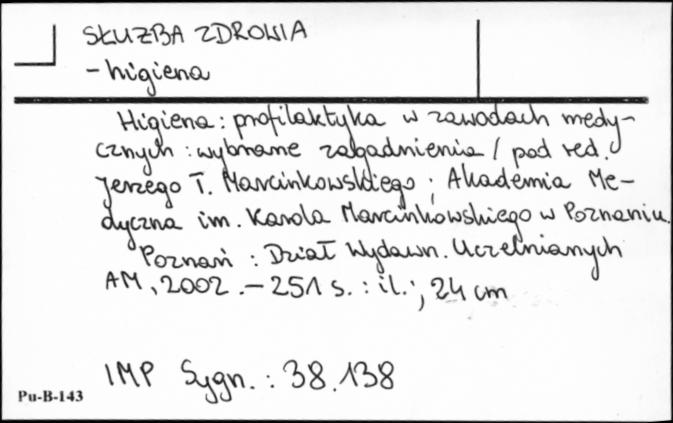 SŁUŻBA ZDROWIA
- higiena
Higiena : profilaktyka w zawodach medy-
cznych : wybrane zagadnienia / pod red.
Jerzego T. Marcinkowskiego ; Akademia Me-
dyczna im. Karola Marcinkowskiego w Poznaniu.
Poznań : Dział Wydawn. Uczelnianych
AM, 2002. - 251 s. : il. ; 24 cm
IMP Sygn. : 38.138
Pu-B-143